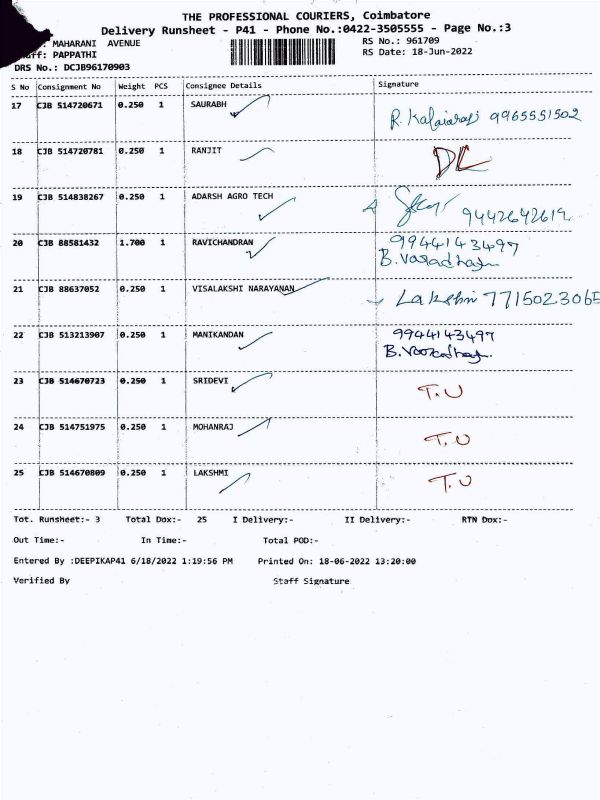 THE PROFESSIONAL COURIERS, Coimbatore
Delivery Runsheet - P41 - Phone No.:0422-3505555 - Page No.:3
: MAHARANI AVENUE
RS No.: 961709
ff: PAPPATHI
RS Date: 18-Jun-2022
DRS No.: DCJB96170903
S No Consignment No Weight PCS Consignee Details Signature
17 CJB 514720671 0.250 1 SAURABH R. Kalaiarasi 9965551502
18 CJB 514720781 0.250 1 RANJIT DL
19 CJB 514838267 0.250 1 ADARSH AGRO TECH 9442642612
20 CJB 88581432 1.700 1 RAVICHANDRAN 9944143497
B. Varadhan
21 CJB 88637052 0.250 1 VISALAKSHI NARAYANAN Lakshmi 7715023065
22 CJB 513213907 0.250 1 MANIKANDAN 9944143497
B. Varadhan
23 CJB 514670723 0.250 1 SRIDEVI T.U
24 CJB 514751975 0.250 1 MOHANRAJ T.U
25 CJB 514670809 0.250 1 LAKSHMI T.U
Tot. Runsheet:- 3 Total Dox:- 25 I Delivery:- II Delivery:- RTN Dox:-
Out Time:- In Time:- Total POD:-
Entered By :DEEPIKAP41 6/18/2022 1:19:56 PM Printed On: 18-06-2022 13:20:00
Verified By Staff Signature